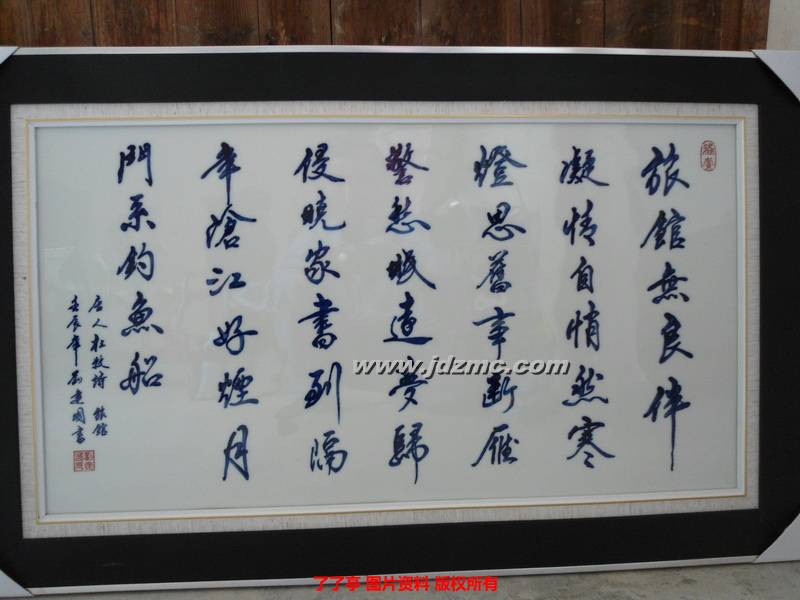 旅館無良伴
凝情自悄然寒
燈思舊事斷雁
警愁眠遠夢歸
侵曉家書到隔
年滄江好煙月
門系釣魚船
唐人杜牧詩 旅館
壬辰年劉建國書
www.jdzmc.com
了了亭 图片资料 版权所有